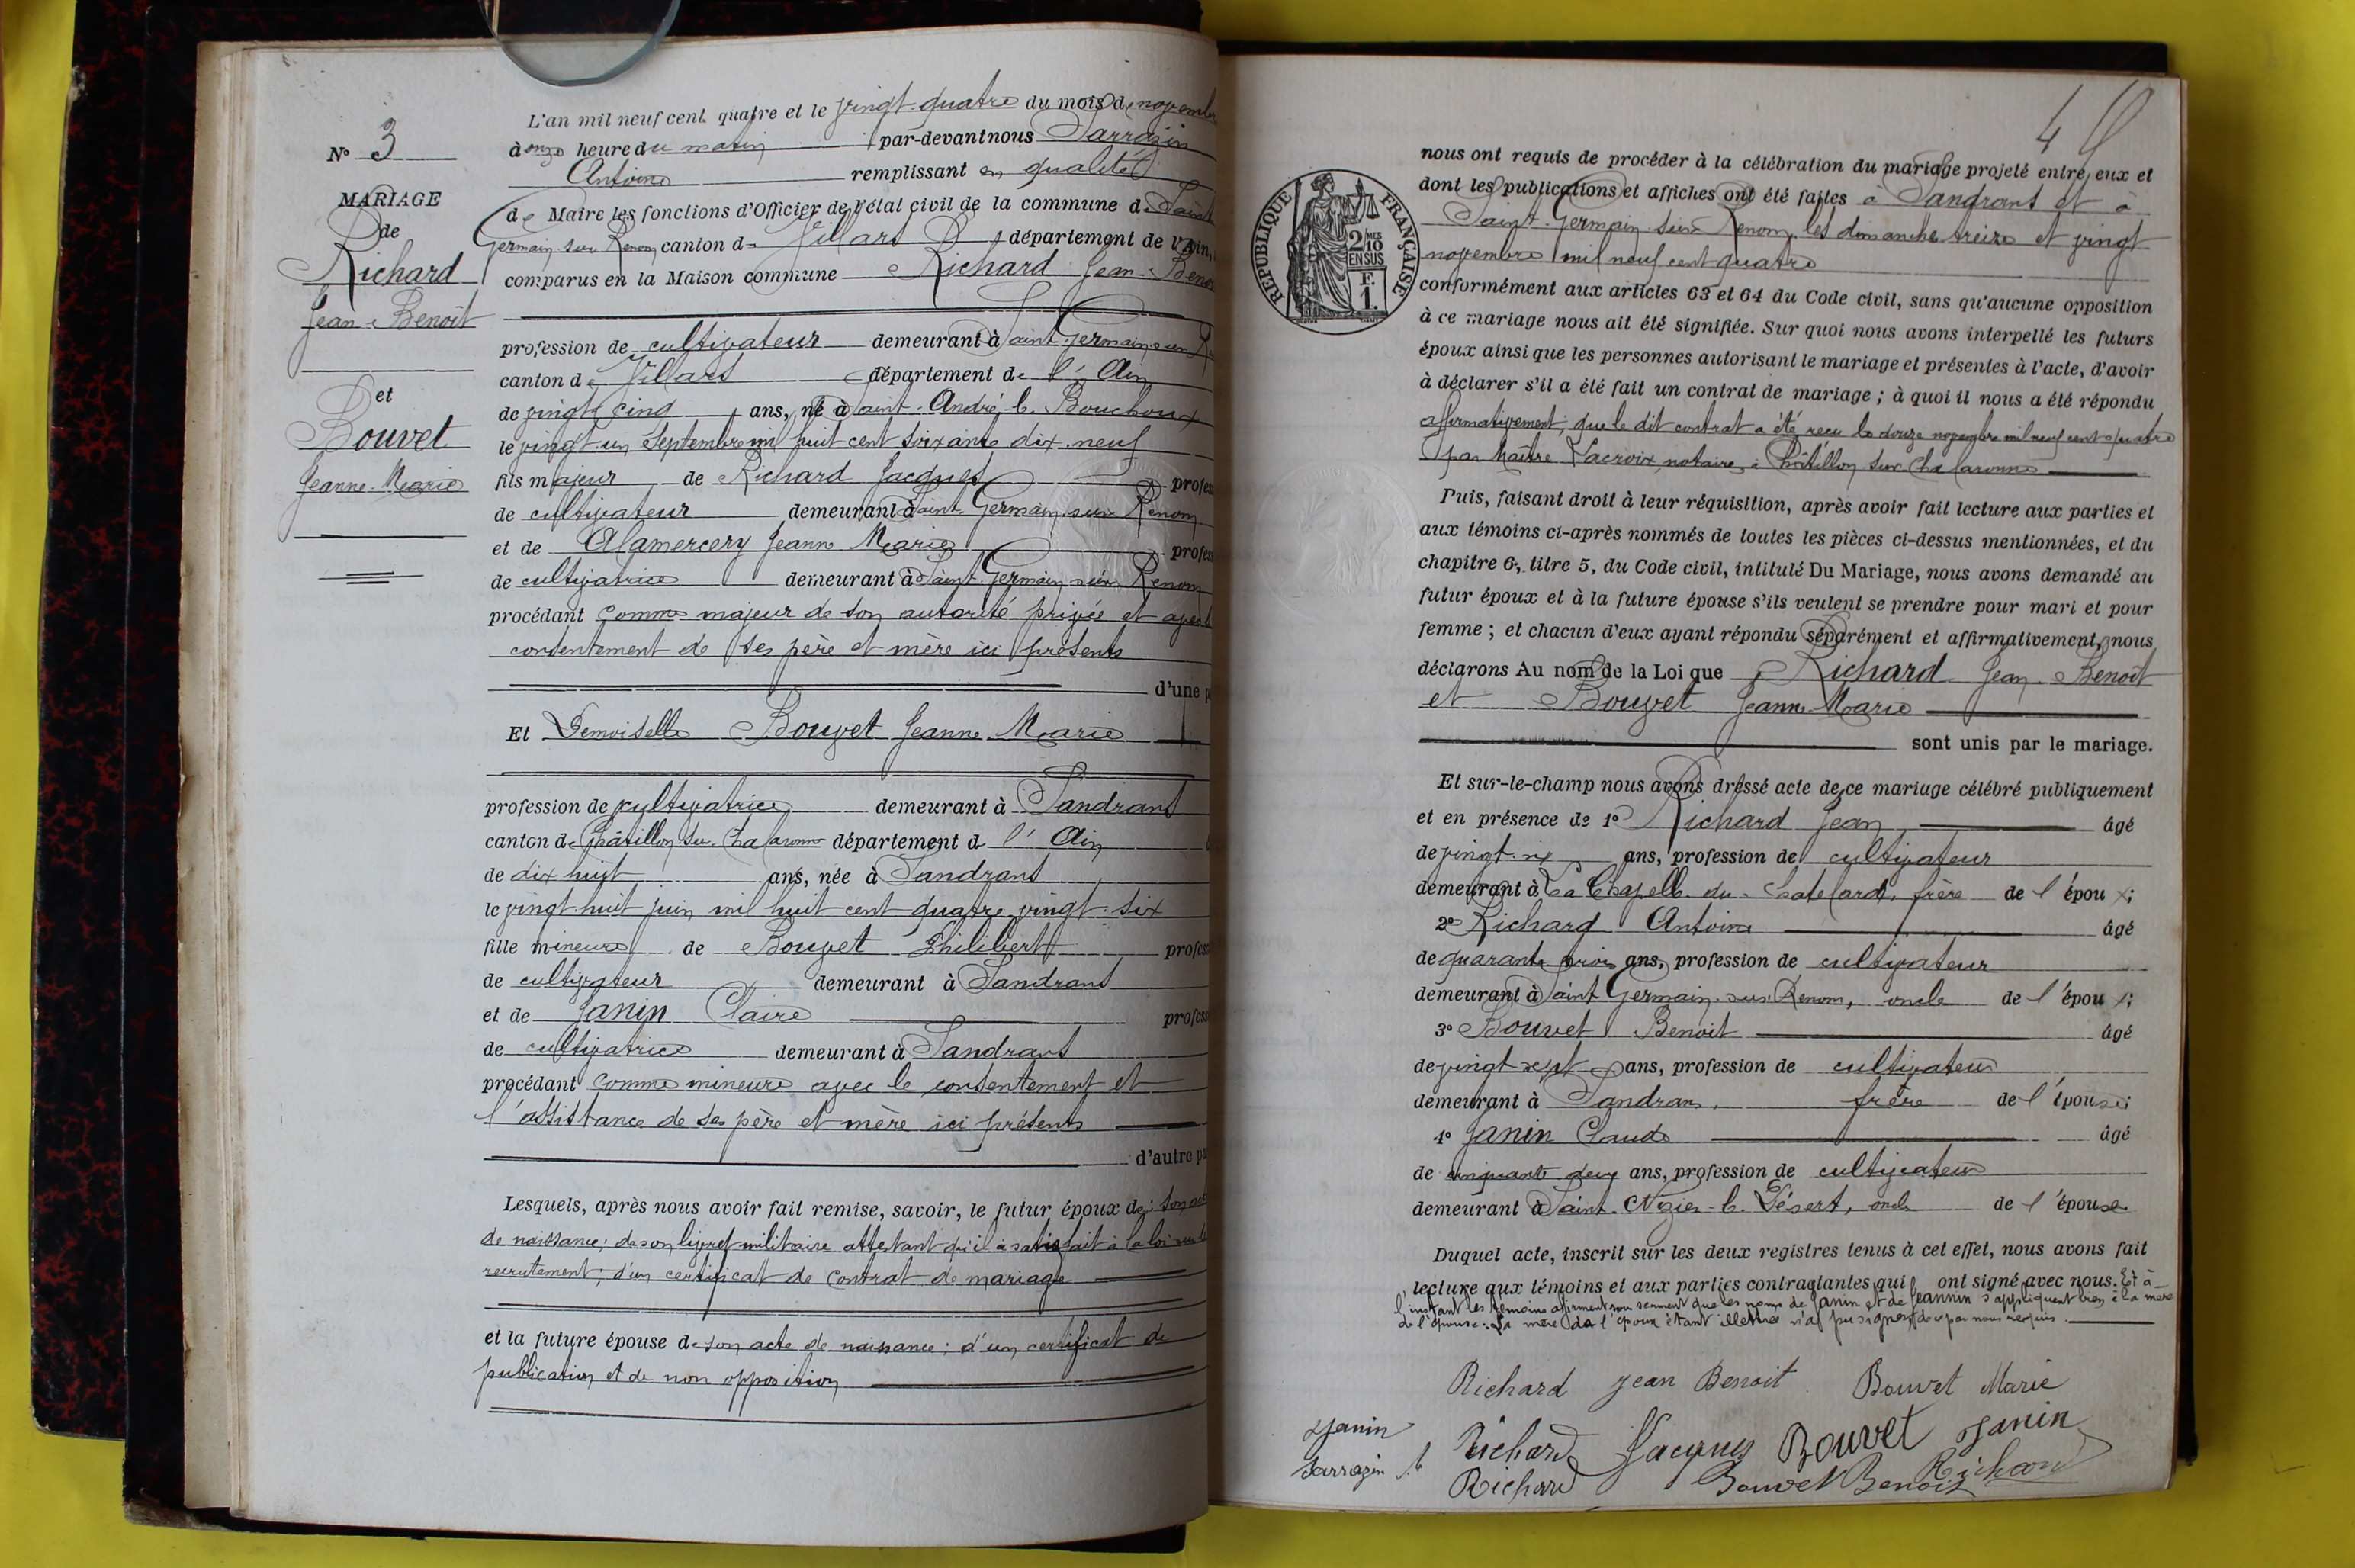 L'an mil neuf cent quatre et le vingt-quatre du mois de novembre
N° 3
à onze heure du matin par-devant nous Sarrazin
Antoine remplissant en qualité
MARIAGE
de Maire les fonctions d'Officier de l'état civil de la commune de Saint
de
Germain sur Renom canton de Villars département de l'Ain,
Richard
comparus en la Maison commune Richard Jean-Benoit
Jean-Benoit
profession de cultivateur demeurant à Saint-Germain sur
canton de Villars département de l'Ain
et
de vingt cinq ans, né à Saint-André-le-Bouchoux
Bouvet
le vingt-un Septembre mil huit cent soixante dix-neuf
Jeanne-Marie
fils majeur de Richard Jacques profes
de cultivateur demeurant à Saint Germain sur Renom
et de Alamercery Jeanne Marie profes
de cultivatrice demeurant à Saint-Germain sur Renom
procédant comme majeur de son autorité privée et avec le
consentement de ses père et mère ici présents
d'une p
Et Demoiselle Bouvet Jeanne-Marie
profession de cultivatrice demeurant à Sandrans
canton de Châtillon sur Chalaronne département de l'Ain
de dix huit ans, née à Sandrans
le vingt-huit juin mil huit cent quatre-vingt-six
fille mineure de Bouvet Philibert profes
de cultivateur demeurant à Sandrans
et de Janin Claire profes
de cultivatrice demeurant à Sandrans
procédant comme mineure avec le consentement et
l'assistance de ses père et mère ici présents
d'autre pa
Lesquels, après nous avoir fait remise, savoir, le futur époux de: son acte
de naissance; de son livret militaire attestant qu'il a satisfait à la loi sur le
recrutement; d'un certificat de contrat de mariage
et la future épouse de son acte de naissance; d'un certificat de
publication et de non opposition
4
nous ont requis de procéder à la célébration du mariage projeté entre eux et
dont les publications et affiches ont été faites à Sandrans et à
Saint-Germain-sur-Renom, les dimanche treize et vingt
novembre mil neuf cent quatre
RÉPUBLIQUE FRANÇAISE
2 MES 10 EN SUS
F. 1.
conformément aux articles 63 et 64 du Code civil, sans qu'aucune opposition
à ce mariage nous ait été signifiée. Sur quoi nous avons interpellé les futurs
époux ainsi que les personnes autorisant le mariage et présentes à l'acte, d'avoir
à déclarer s'il a été fait un contrat de mariage ; à quoi il nous a été répondu
affirmativement, que le dit contrat a été reçu le douze novembre mil neuf cent quatre
par Maître Lacroix, notaire à Châtillon sur Chalaronne
Puis, faisant droit à leur réquisition, après avoir fait lecture aux parties et
aux témoins ci-après nommés de toutes les pièces ci-dessus mentionnées, et du
chapitre 6, titre 5, du Code civil, intitulé Du Mariage, nous avons demandé au
futur époux et à la future épouse s'ils veulent se prendre pour mari et pour
femme ; et chacun d'eux ayant répondu séparément et affirmativement, nous
déclarons Au nom de la Loi que Richard Jean-Benoit
et Bouvet Jeanne-Marie
sont unis par le mariage.
Et sur-le-champ nous avons dressé acte de ce mariage célébré publiquement
et en présence de 1° Richard Jean âgé
de vingt-six ans, profession de cultivateur
demeurant à La Chapelle-du-Chatelard, frère de l'époux;
2° Richard Antoine âgé
de quarante trois ans, profession de cultivateur
demeurant à Saint Germain-sur-Renom, oncle de l'époux;
3° Bouvet Benoit âgé
de vingt-sept ans, profession de cultivateur
demeurant à Sandrans, frère de l'épouse;
4° Janin Claude âgé
de cinquante deux ans, profession de cultivateur
demeurant à Saint-Nizier-le-Désert, oncle de l'épouse
Duquel acte, inscrit sur les deux registres tenus à cet effet, nous avons fait
lecture aux témoins et aux parties contractantes qui ont signé avec nous. Et à
l'instant les témoins affirment sous serment que les noms de Janin et de Jeannin s'appliquent bien à la mère
de l'épouse. La mère de l'époux étant illettrée n'a pu signer de ce par nous requis.
Richard Jean Benoit Bouvet Marie
Janin Richard Jacques Bouvet Janin
Sarrazin A Richard Bouvet Benoit Richard